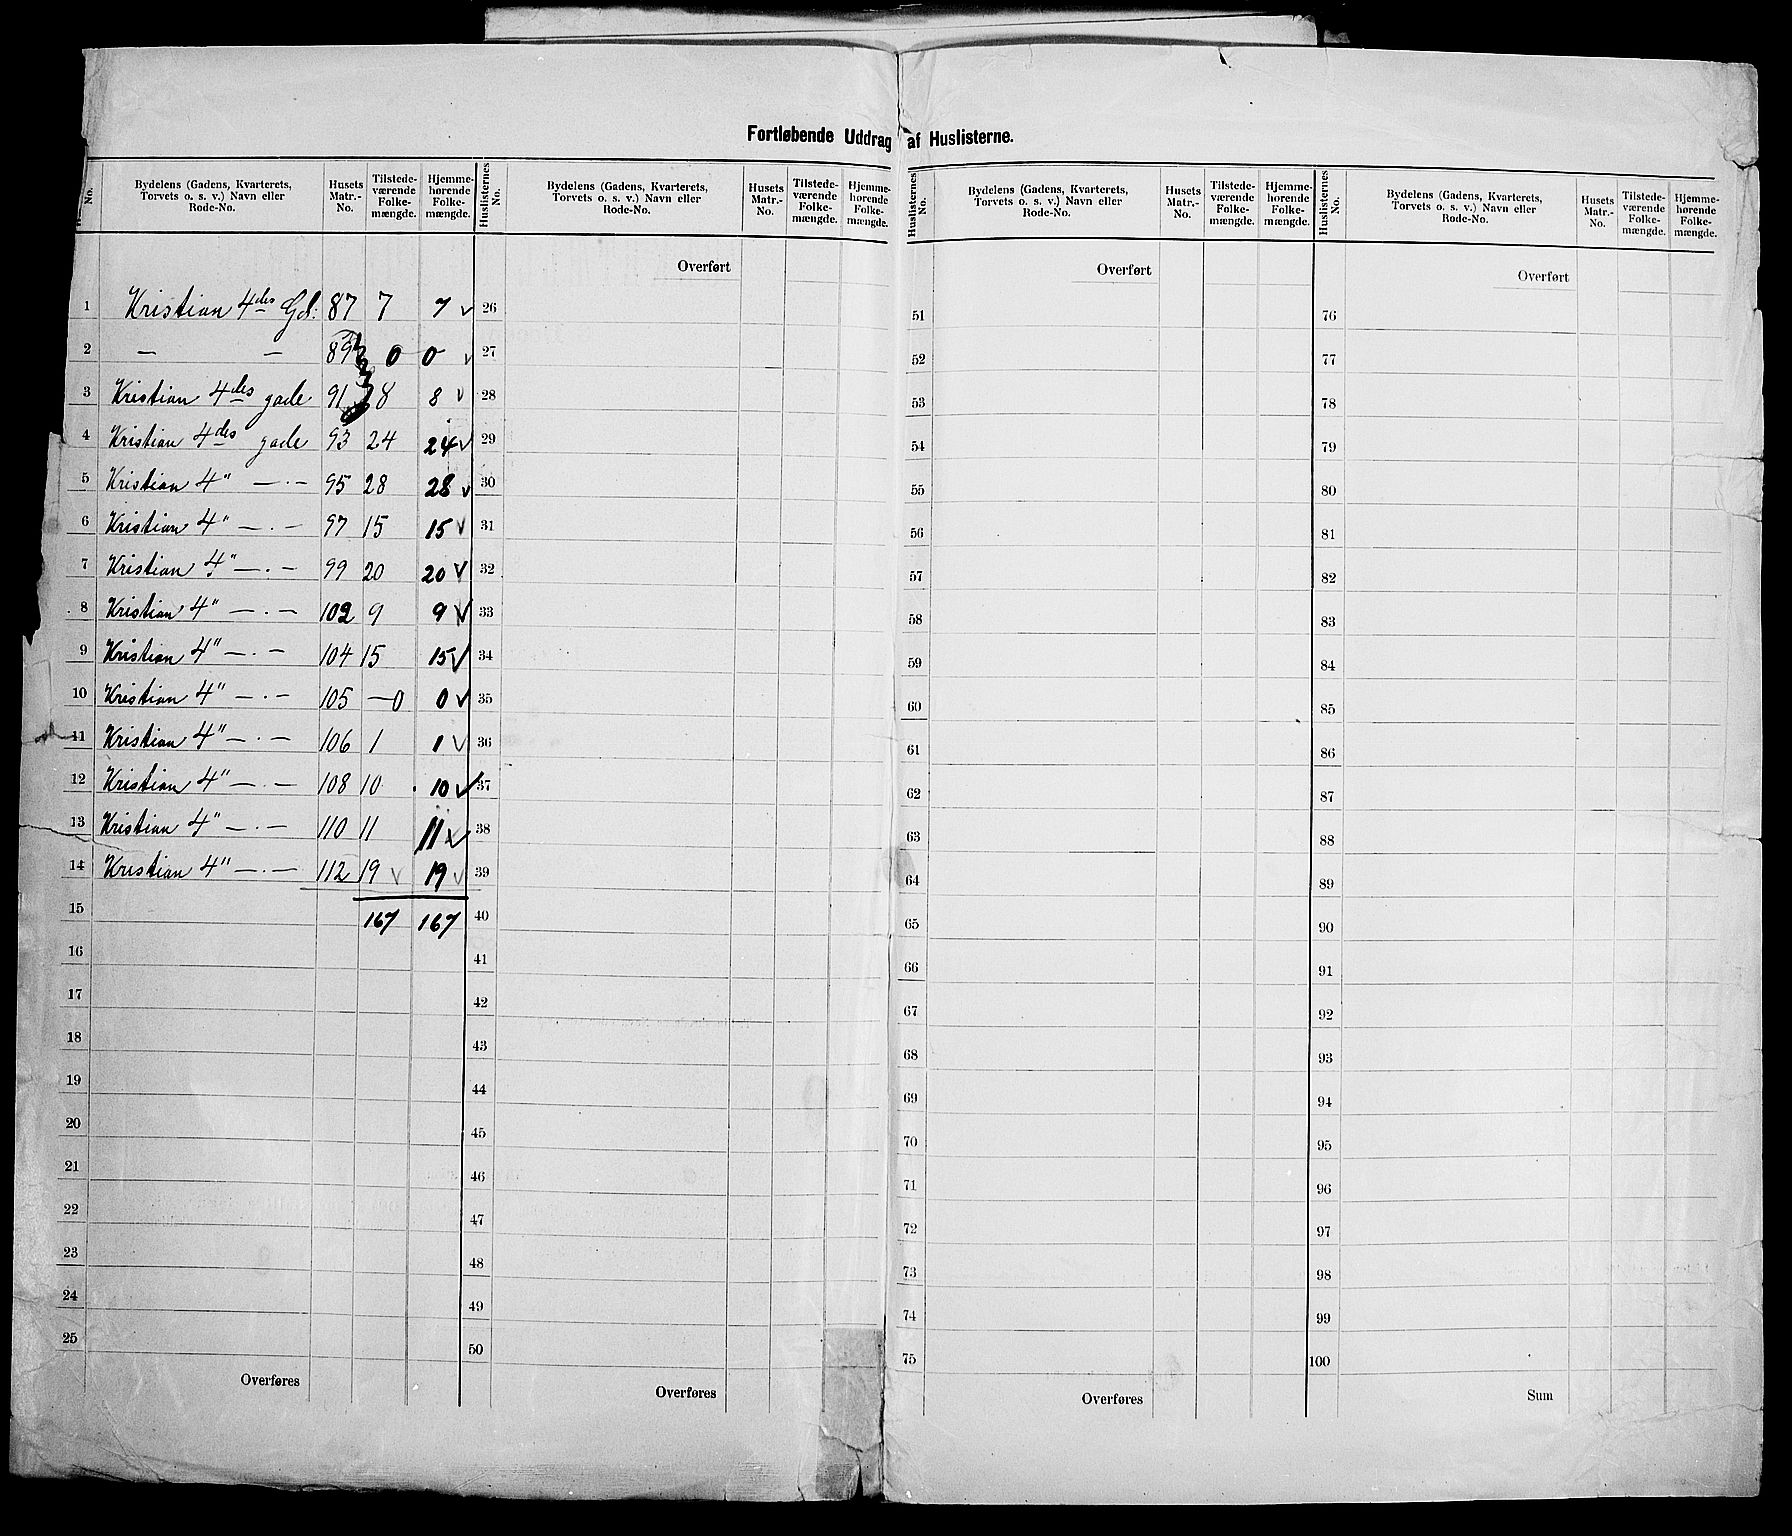 Fortløbende Uddrag af Huslisterne.
No. Bydelens (Gadens, Kvarterets, Torvets o. s. v.) Navn eller Rode-No. Husets Matr.-No. Tilstede-værende Folke-mængde. Hjemme-hørende Folke-mængde.
Huslisternes No. Bydelens (Gadens, Kvarterets, Torvets o. s. v.) Navn eller Rode-No. Husets Matr.-No. Tilstede-værende Folke-mængde. Hjemme-hørende Folke-mængde.
Huslisternes No. Bydelens (Gadens, Kvarterets, Torvets o. s. v.) Navn eller Rode-No. Husets Matr.-No. Tilstede-værende Folke-mængde. Hjemme-hørende Folke-mængde.
Huslisternes No. Bydelens (Gadens, Kvarterets, Torvets o. s. v.) Navn eller Rode-No. Husets Matr.-No. Tilstede-værende Folke-mængde. Hjemme-hørende Folke-mængde.
1 Kristian 4des Gd: 87 7 7 ✓
2 — — 89 0 0 ✓
3 Kristian 4des gade 91 8 8 ✓
4 Kristian 4des gade 93 24 24 ✓
5 Kristian 4" —·— 95 28 28 ✓
6 Kristian 4" —·— 97 15 15 ✓
7 Kristian 4" —·— 99 20 20 ✓
8 Kristian 4" —·— 102 9 9 ✓
9 Kristian 4" —·— 104 15 15 ✓
10 Kristian 4" —·— 105 —0 0 ✓
11 Kristian 4" —·— 106 1 1 ✓
12 Kristian 4" —·— 108 10 10 ✓
13 Kristian 4" —·— 110 11 11 ✓
14 Kristian 4" —·— 112 19 ✓ 19 ✓
15 167 167
16
17
18
19
20
21
22
23
24
25
Overføres
Overført
26
27
28
29
30
31
32
33
34
35
36
37
38
39
40
41
42
43
44
45
46
47
48
49
50
Overføres
Overført
51
52
53
54
55
56
57
58
59
60
61
62
63
64
65
66
67
68
69
70
71
72
73
74
75
Overføres
Overført
76
77
78
79
80
81
82
83
84
85
86
87
88
89
90
91
92
93
94
95
96
97
98
99
100
Sum